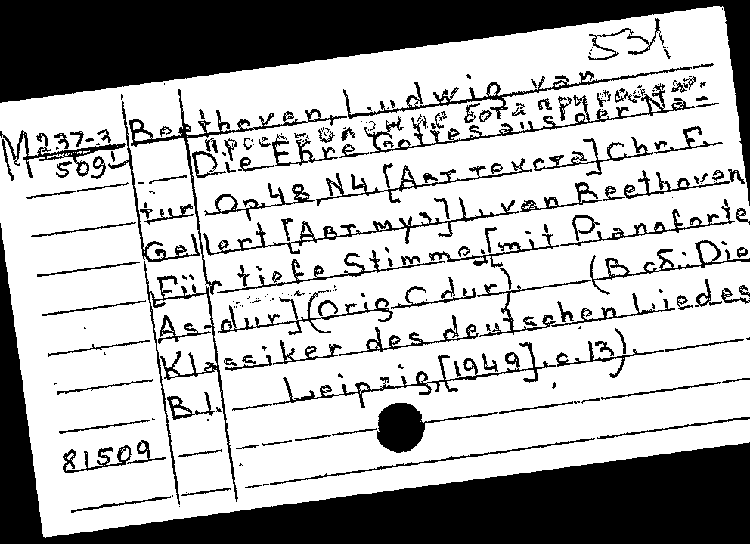 531
M 237-3
5091
Beethoven, Ludwig van
Die Ehre Gottes aus der Na-
tur. Op. 48, N4. [Авт. текста] Chr. F.
Gellert [Авт. муз.] L. van Beethoven
[Für tiefe Stimme [mit Pianoforte
As-dur] (Orig. C dur). (В сб.: Die
Klassiker des deutschen Liedes
B.I. Leipzig, [1949]. с. 13).
81509